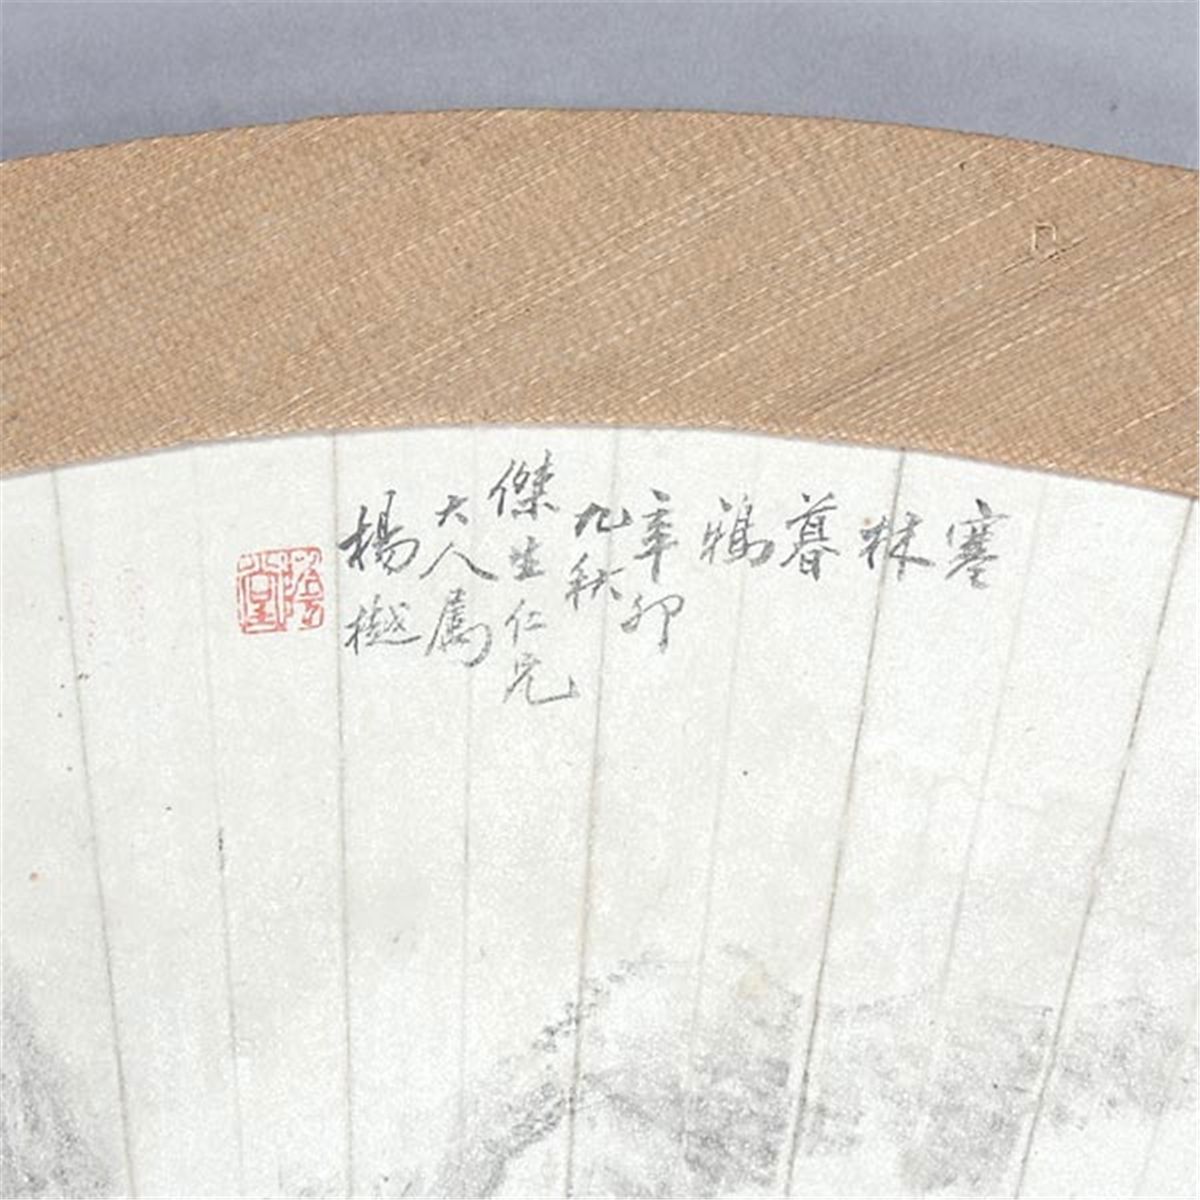 寒
林
暮
鴉
辛卯
九秋
傑生仁兄
大人属
楊樾
蔭堂